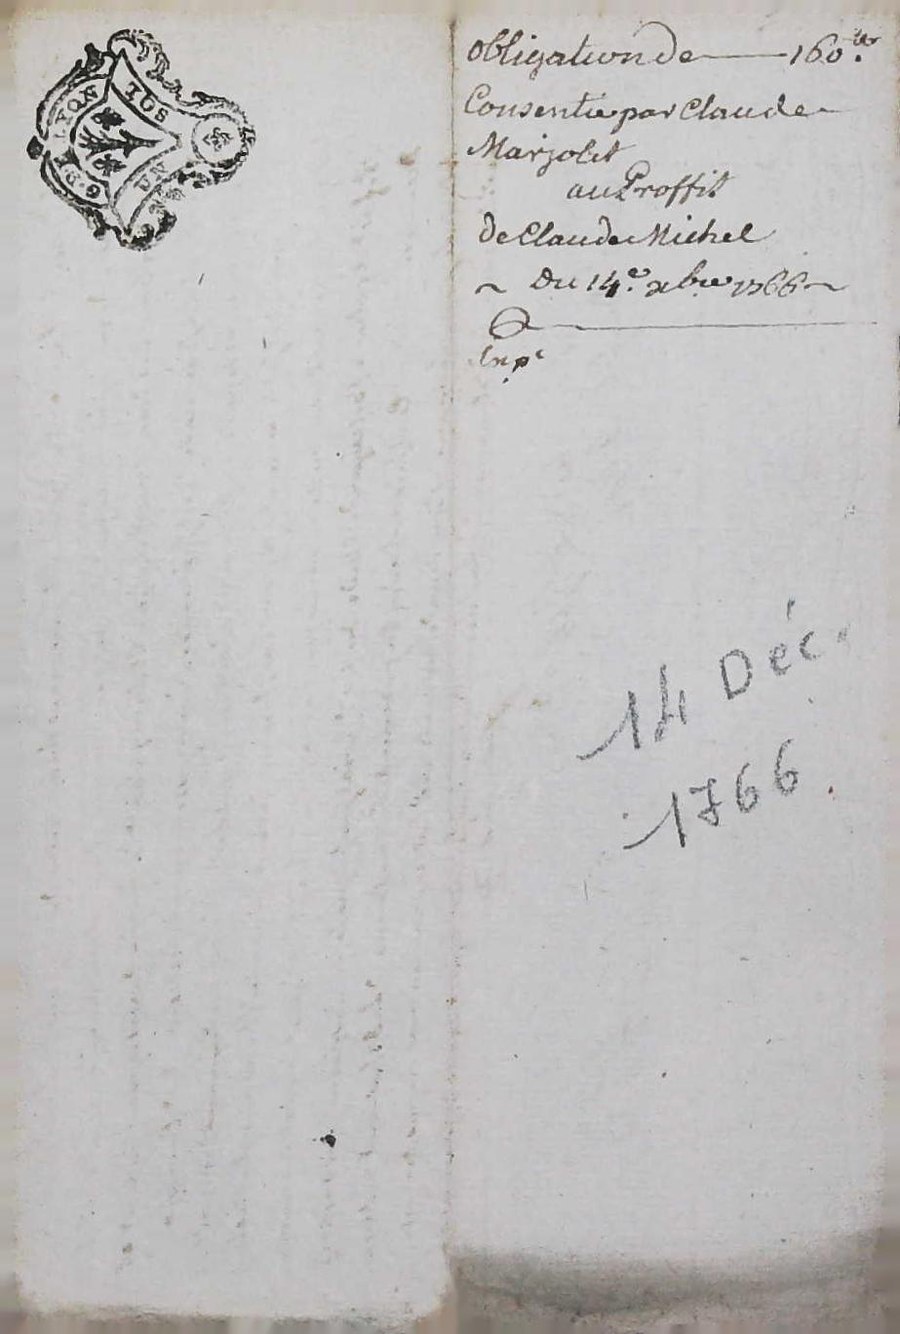 G. D. LYON
UN SOL
obligation de 160.tt
Consentie par Claude
Marjolit
au Proffit
de Claude Michel
Du 14.e xbre 1766
Exp.e
14 Déc.
1766